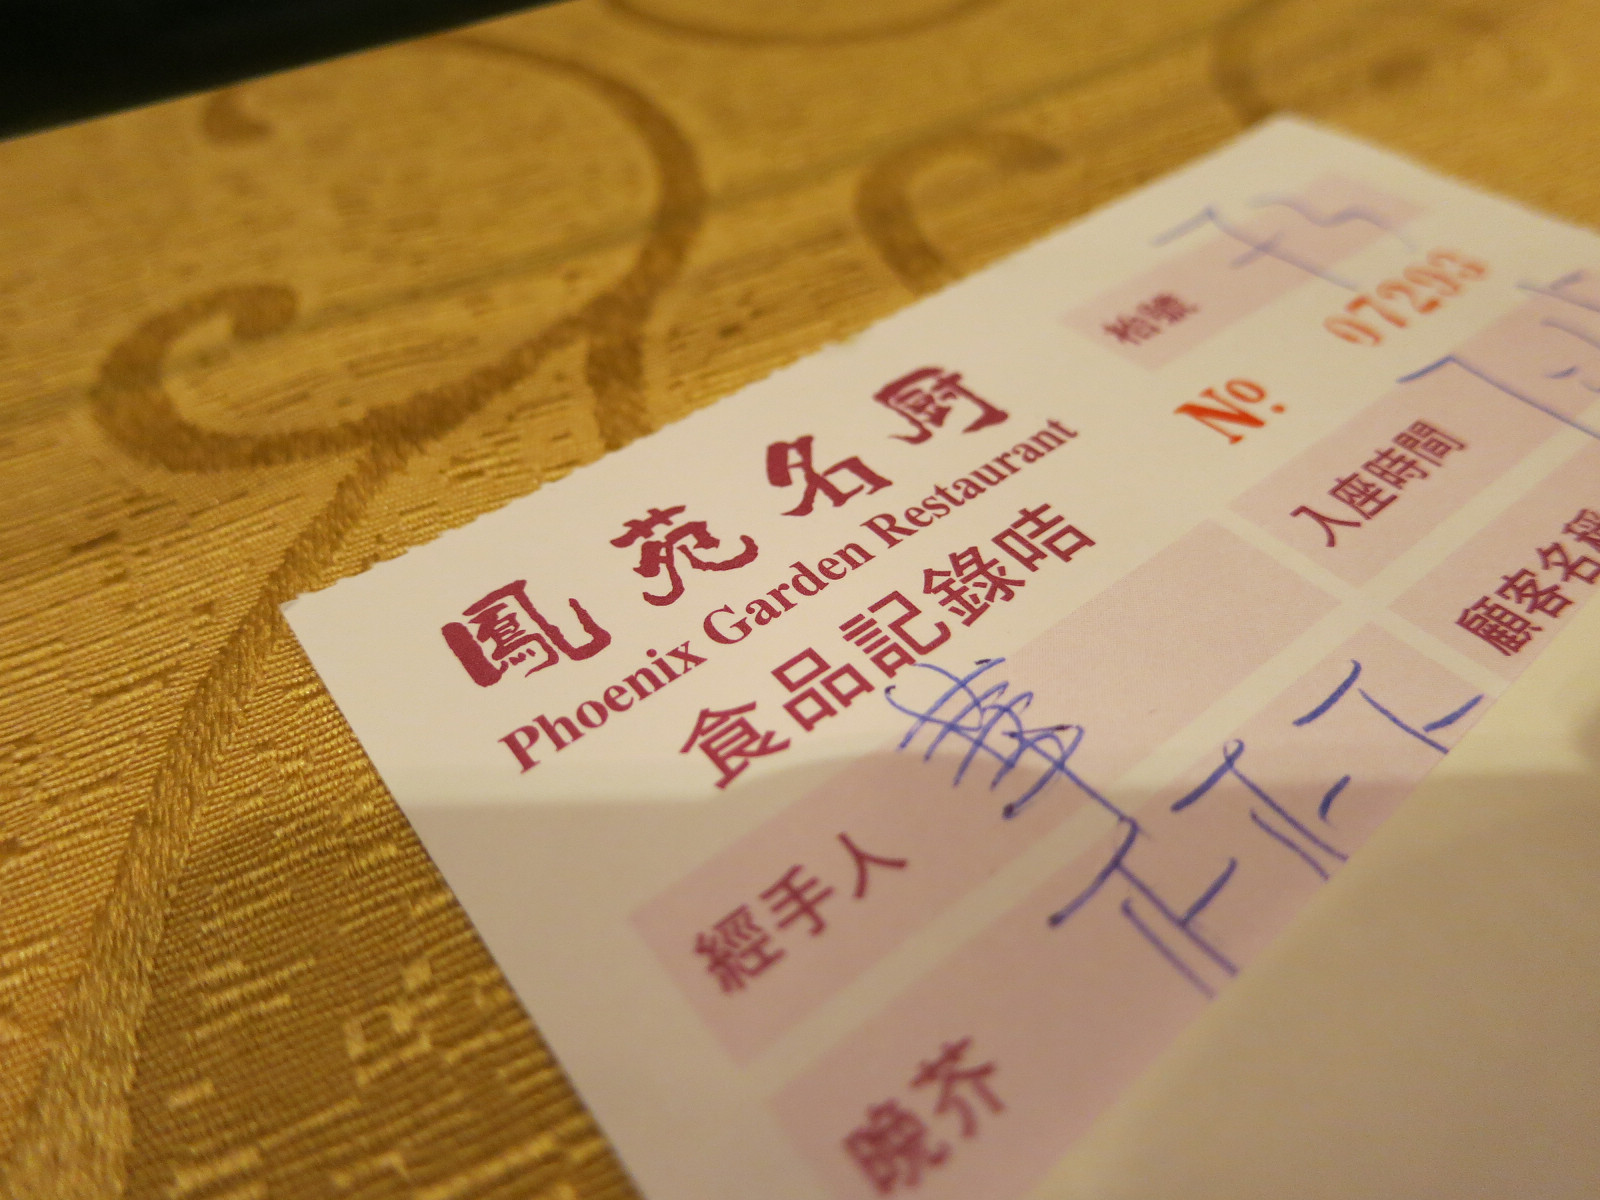 鳳苑名厨
Phoenix Garden Restaurant
食品記錄咭
枱號
No. 07293
入座時間
顧客名稱
經手人
晚芥